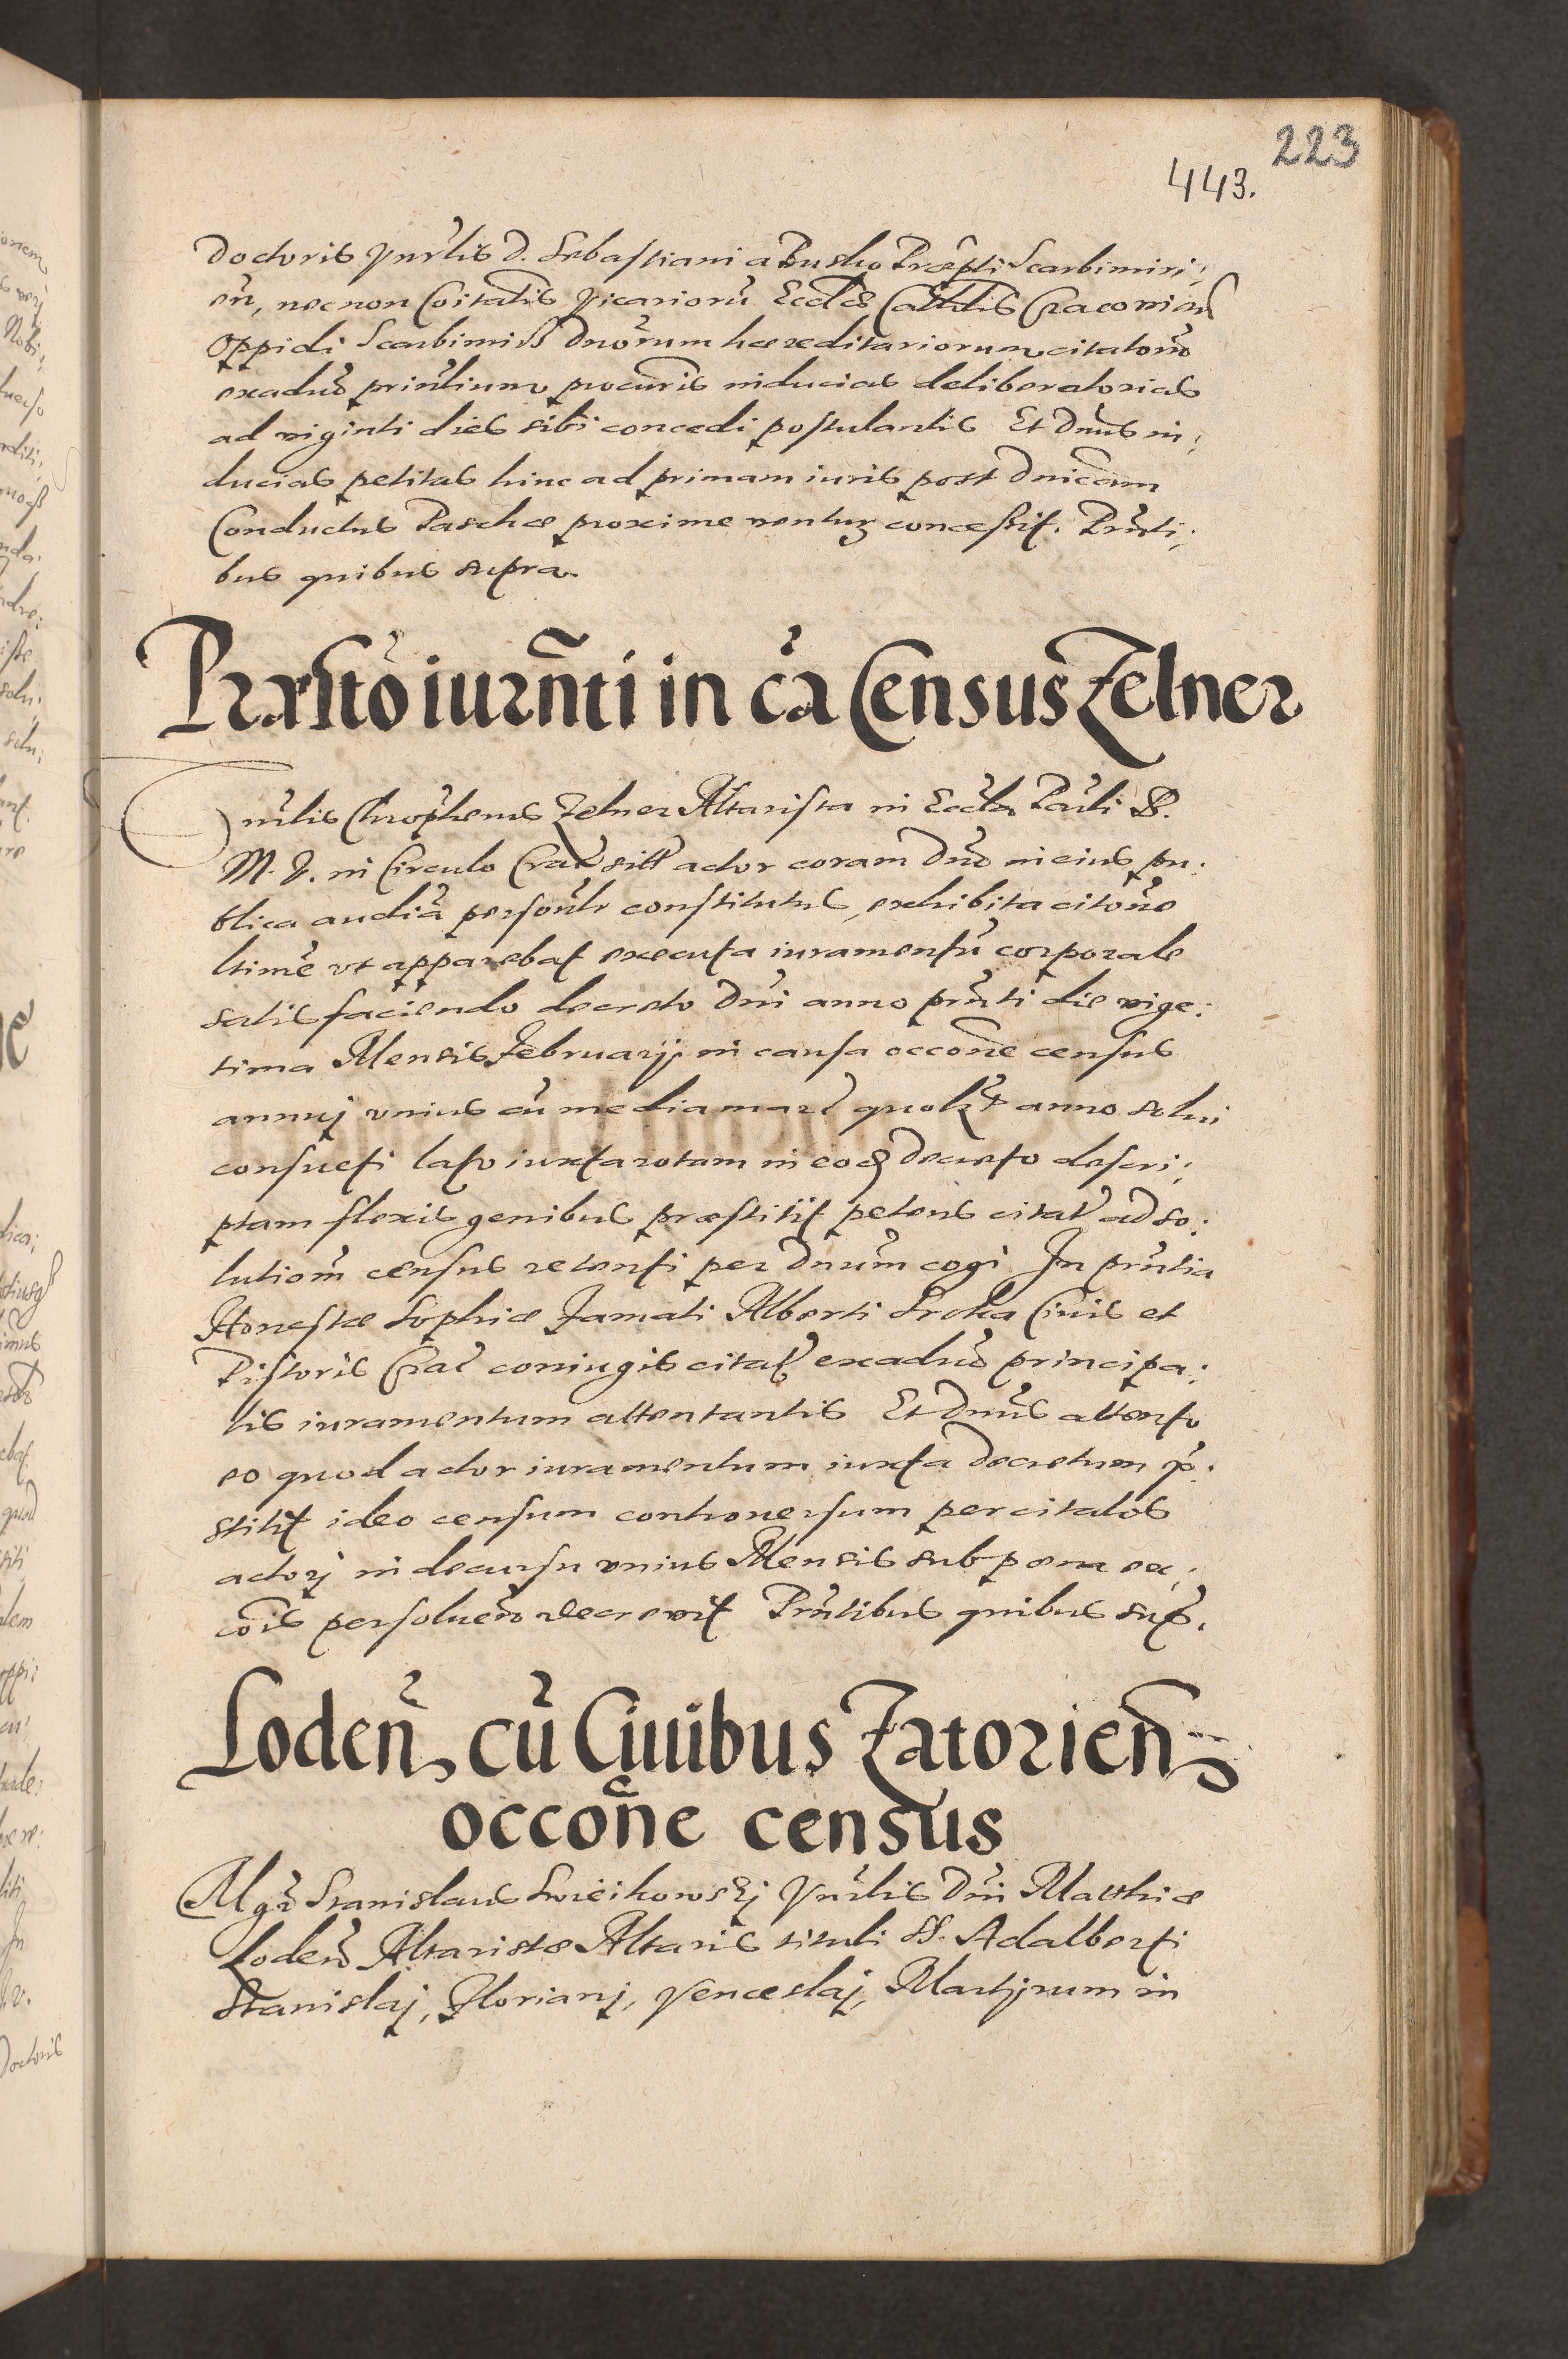 223
443.
Doctoris Vnrlis D. Sebastiani a Busko Præpti Scarbimiri;
en, necnon Coitatis Vicarioru Eccliæ Cathlis Cracovien
Oppidi Scarbimirs Dnorum hæreditariorum citatorum
exaduo prinlium procuris inducias deliberatorias
ad viginti dies sibi concedi postulantis Et Dnus in;
ducias petitas hinc ad primam iuris post Dnicam
Conductus Paschæ proxime ventur concessit. Prnti;
bus quibus supra.
Præsto iurnti in ca Census Zelner
Vnrlis Chrophorus Zelner Altarista in Eccla Parli B.
M. V. in Circulo Crac sitt actor coram Dno in eius pu:
blica audia personlr constitutus, exhibita citone
ltime vt apparebat executa iuramentu corporale
satisfaciendo decreto Dni anno prnti die vige:
sima Mensis Februarij in causa occone census
annuj vnius cu media marc quolzt anno solui
consueti lato iuxta rotam in eod Decreto descri;
ptam flexis genibus præstitit petens citat ad so:
lutiom census retenti per Dnum cogi In prntia
Honestæ Sophiæ Famati Alberti Sroka Ciuis et
Pistoris Crac coniugis citat exaduo principa:
lis iuramentum attentantis Et Dnus attento
eo quod actor iuramentum iuxta Decretum p:
stitit ideo censum controuersum per citatos
actorj in decursu vnius Mensis sub poena ex;
cois persoluen decrevit Prntibus quibus sup.
Loden cu Ciuibus Zatorien
occone census
Mgr Stanislaus Swieikowskj Vnrlis Dni Matthiæ
Loden Altaristæ Altaris tituli SS. Adalberti
Stanislaj, Florianj, Venceslaj, Martyrum in